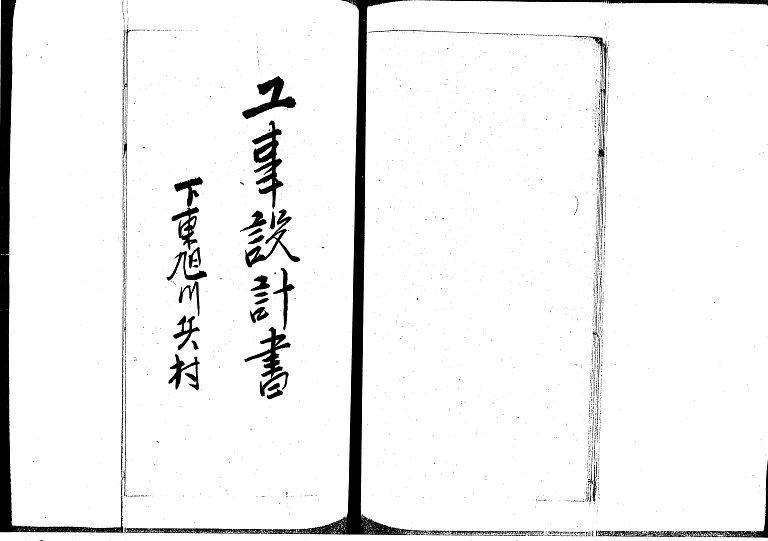 工事設計書
下東旭川兵村